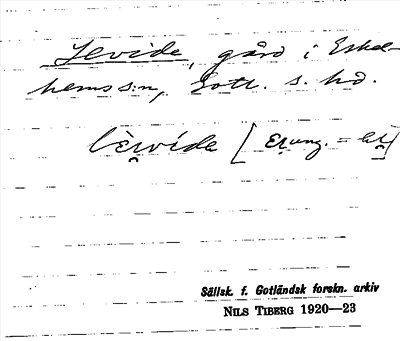 Levide, gård i Eskel-
hems s:n, Gotl. s. hd.
lèvida [
Sällsk. f. Gotländsk forskn. arkiv
NILS TIBERG 1920—23